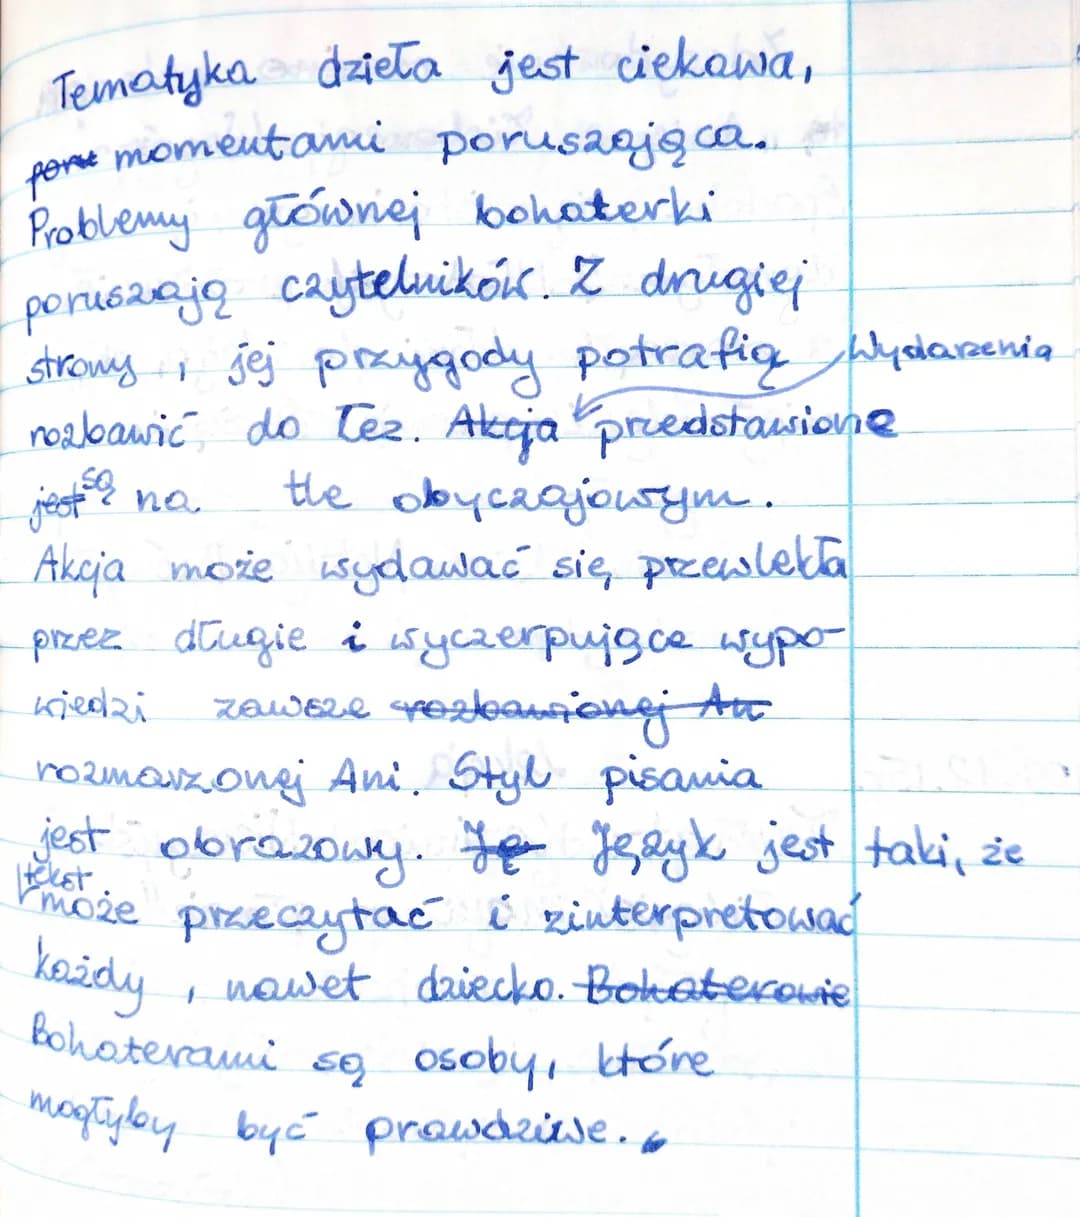 Tematyka dzieła jest ciekawa,
poru momentami poruszająca.
Problemy głównej bohaterki
poruszają czytelników. Z drugiej
strony, jej przygody potrafią Wydarzenia
rozbawić do łez. Akcja przedstawione
jest są na tle obyczajowym.
Akcja może wydawać się przewlekła
przez długie i wyczerpujące wypo-
wiedzi zawsze rozbawionej An
rozmarzonej Ani. Styl pisania
jest obrazowy. Ję Język jest taki, że
tekst
może przeczytać i zinterpretować
każdy, nawet dziecko. Bohaterowie
Bohaterami są osoby, które
mogłyby być prawdziwe.